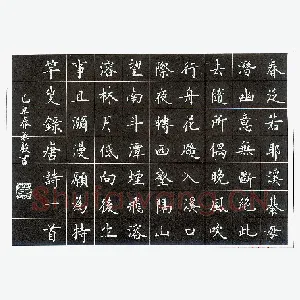 春泛若耶溪綦毋
潛幽意無斷絕此
去隨所偶晚風吹
行舟花路入溪口
際夜轉西壑隔山
望南斗潭煙飛溶
溶林月低向後生
事且瀰漫願為持
竿叟錄唐詩一首